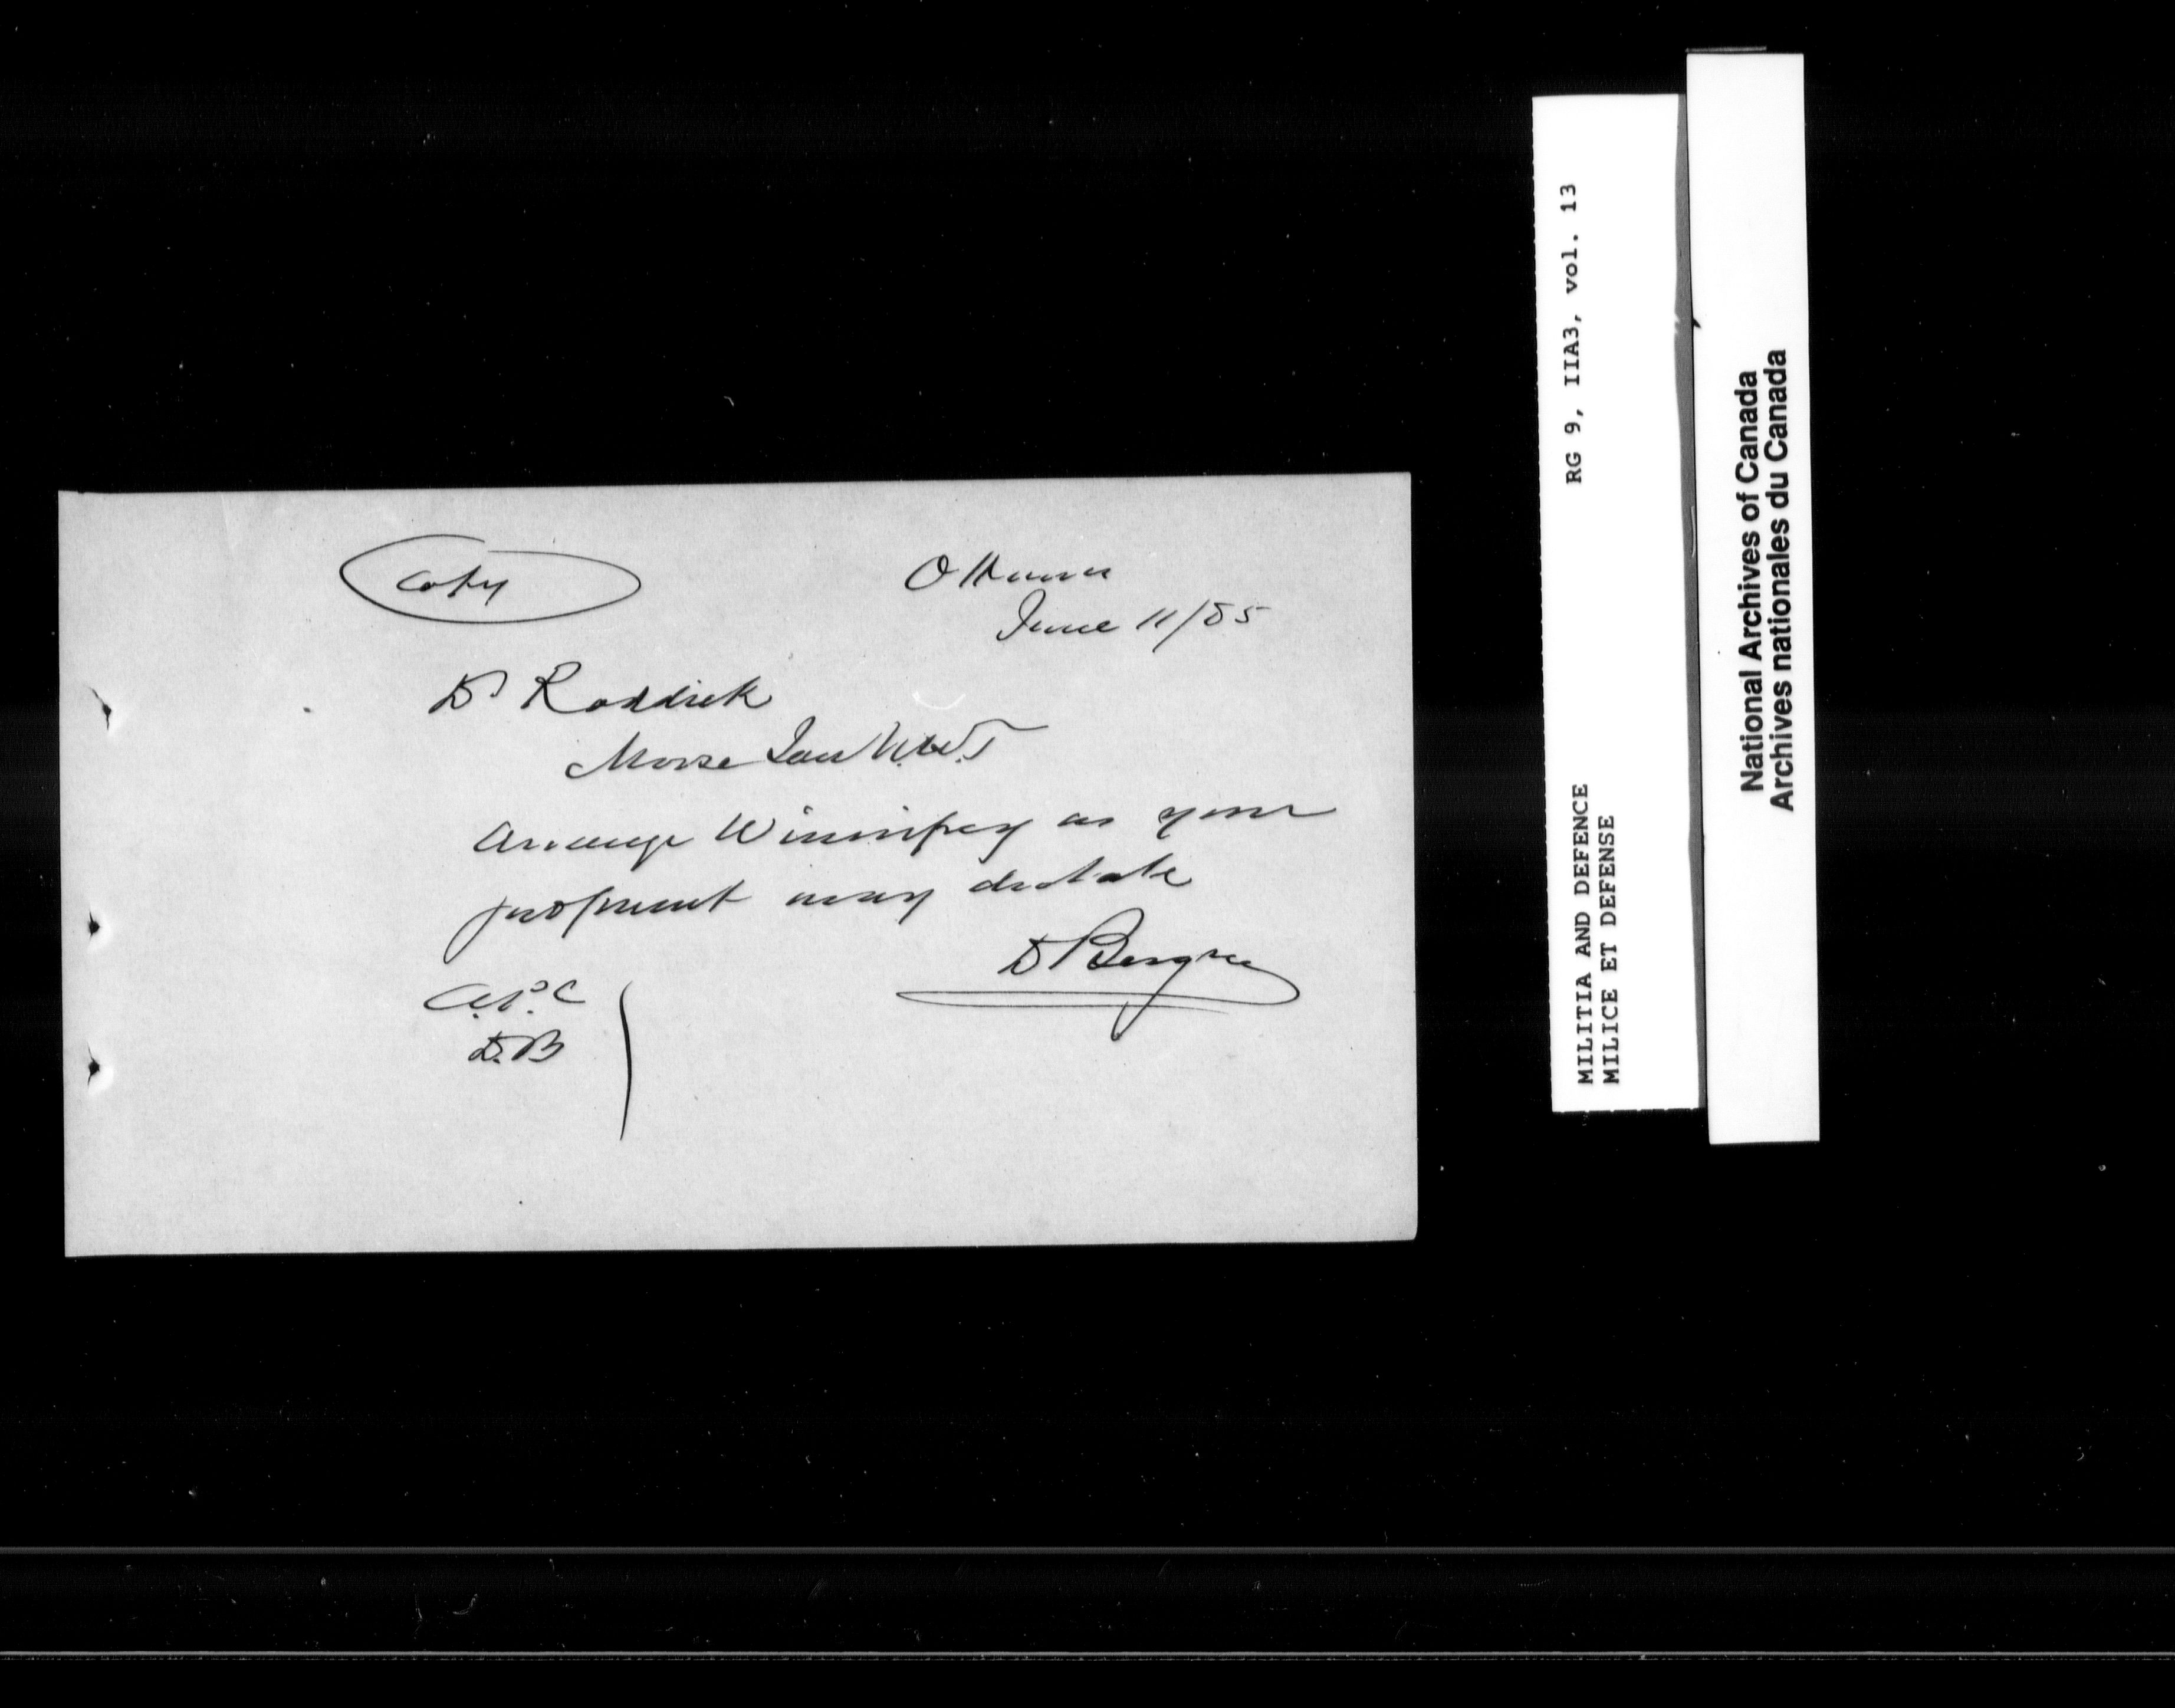 Copy
Ottawa
June 11/85
Dr Roddick
Moose Jaw N.W.T
Arrange Winnipeg as your
judgment may dictate
D Bergin
D.B
RG 9, IIA3, vol. 13
MILITIA AND DEFENCE
MILICE ET DEFENSE
National Archives of Canada
Archives nationales du Canada